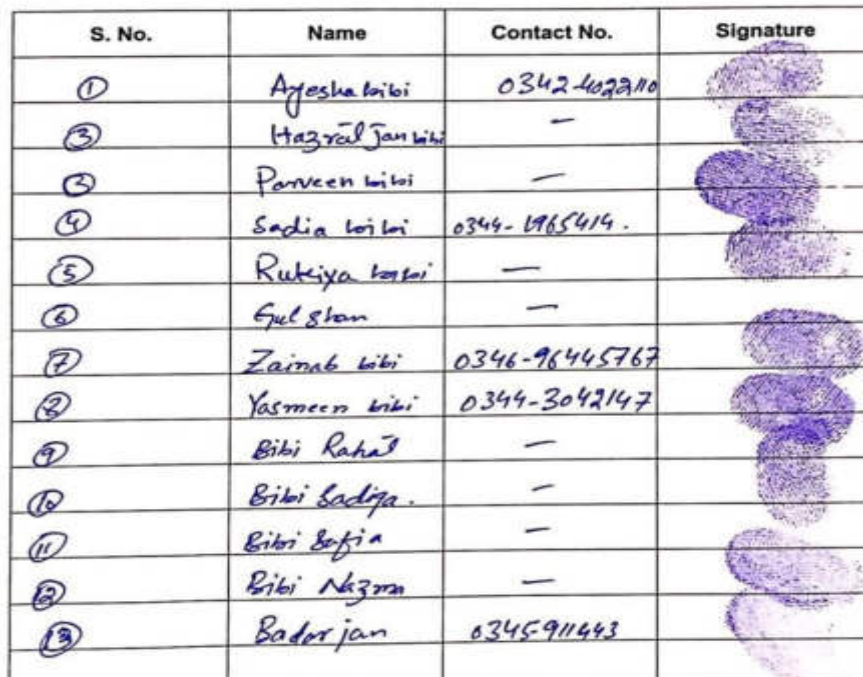 S. No. Name Contact No. Signature
① Ayesha bibi 0342-4022110
③ Hazrat Jan bibi —
③ Parveen bibi —
④ Sadia bibi 0344-1965414.
⑤ Rukiya bibi —
⑥ Gul shan —
⑦ Zainab bibi 0346-96445767
⑧ Yasmeen bibi 0344-3042147
⑨ Bibi Rahat —
⑩ Bibi Sadiqa. —
⑪ Bibi Safia —
⑫ Bibi Nazma —
⑬ Badar jan 0345-911443